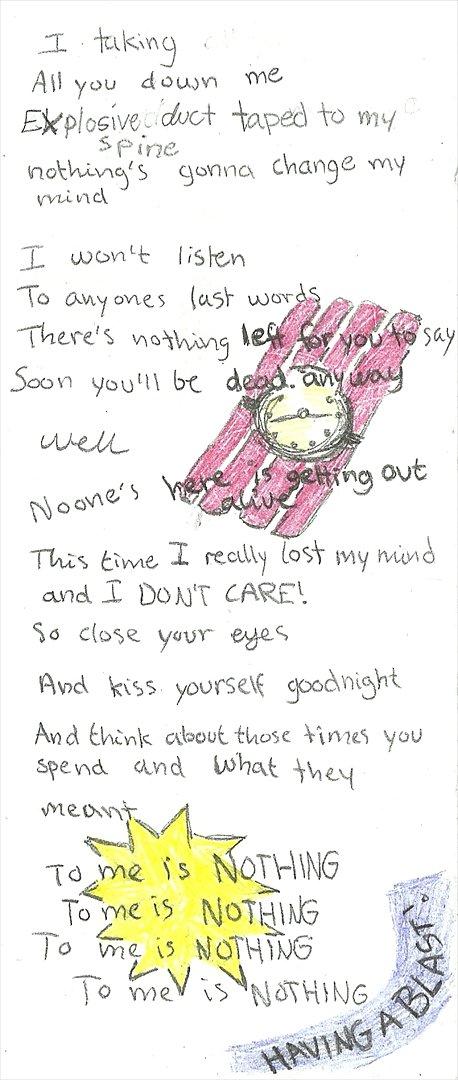 I taking
All you down me
Explosive duct taped to my
spine
nothing's gonna change my
mind
I won't listen
To anyones last words
There's nothing left for you to say
Soon you'll be dead. anyway
Well
Noone's here is getting out
alive
This time I really lost my mind
and I DON'T CARE!
So close your eyes
And kiss yourself goodnight
And think about those times you
spend and what they
meant
To me is NOTHING
To me is NOTHING
To me is NOTHING
To me is NOTHING
HAVING A BLAST!